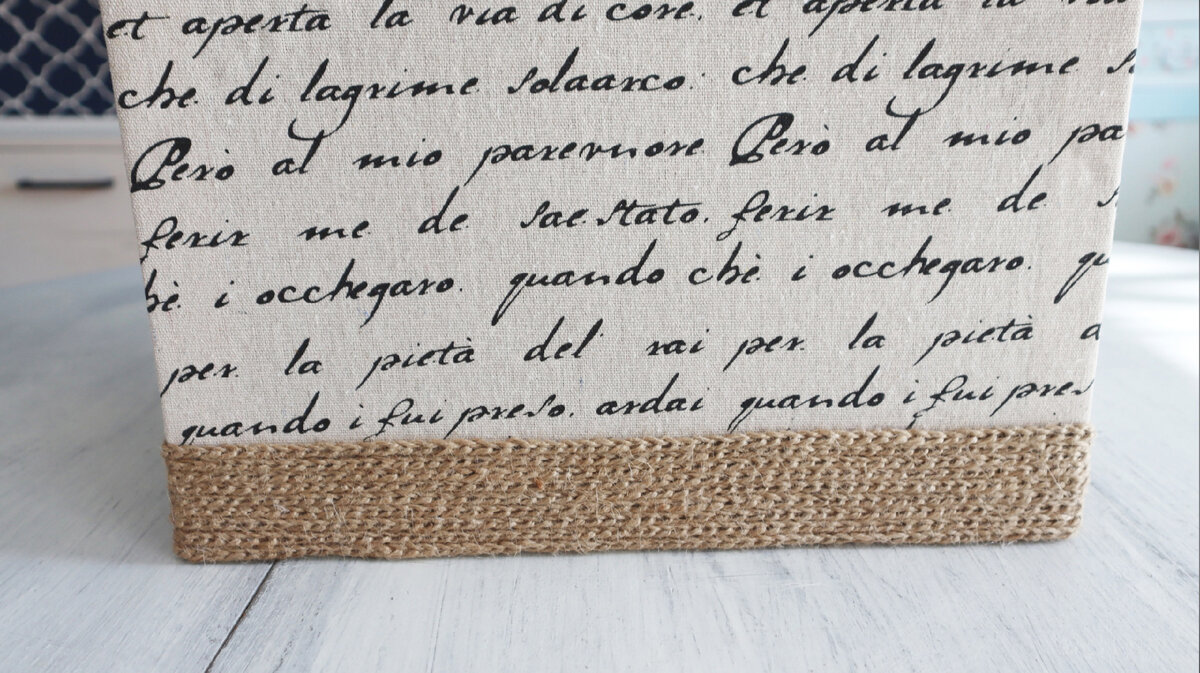 et aperta la via di core. et aperta la via
che. di lagrime solaarco. che. di lagrime
Però al mio parervnore Però al mio pa
ferir me de sae.stato. ferir me. de s
hè i occhegaro. quando chè i occhegaro. qu
per. la pietà del' rai per. la pietà
quando i fui preso. ardai quando i fui pres